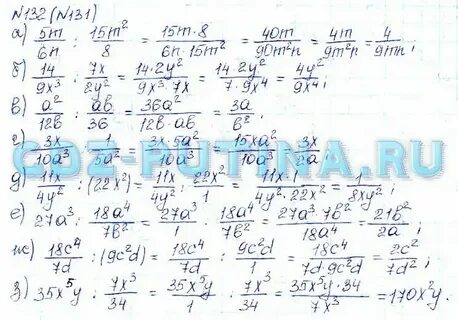 N132 (N131)
а) 5m/6n : 15m²/8 = 15m·8/6n·15m² = 40m/90m²n = 4m/9m²n = 4/9mn;
б) 14/9x³ : 7x/2y² = 14·2y²/9x³·7x = 14·2y²/7·9x⁴ = 4y²/9x⁴;
в) a²/12b : ab/36 = 36a²/12b·ab = 3a/b²;
г) 3x/10a³ : 1/5a² = 3x·5a²/10a³ = 15xa²/10a³ = 3x/2a;
д) 11x/4y² : (22x²) = 11x/4y² : 22x²/1 = 11x·1/4y²·22x² = 1/8xy²;
е) 27a³ : 18a⁴/7b² = 27a³/1 : 18a⁴/7b² = 27a³·7b²/18a⁴ = 21b²/2a;
ж) 18c⁴/7d : (9c²d) = 18c⁴/7d : 9c²d/1 = 18c⁴/7d·9c²d = 2c²/7d²;
з) 35x⁵y : 7x³/34 = 35x⁵y/1 : 7x³/34 = 35x⁵y·34/7x³ = 170x²y
GDZ-PUTINA.RU